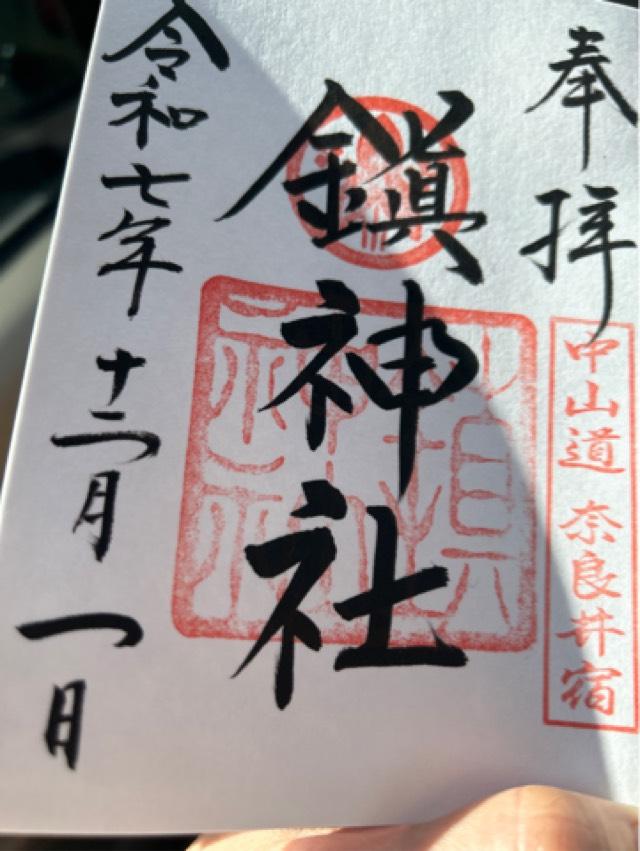 奉拝
中山道 奈良井宿
鎭神社
令和七年十二月一日